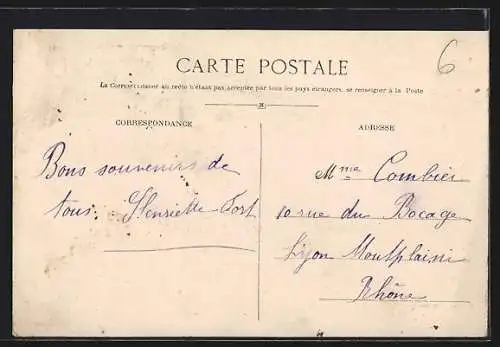 6
CARTE POSTALE
La Correspondance au recto n'étant pas acceptée par tous les pays étrangers, se renseigner à la Poste
CORRESPONDANCE
Bons souvenirs de
tous. Henriette Fort
ADRESSE
Mme Combier
10 rue du Bocage
Lyon Montplaisir
Rhône